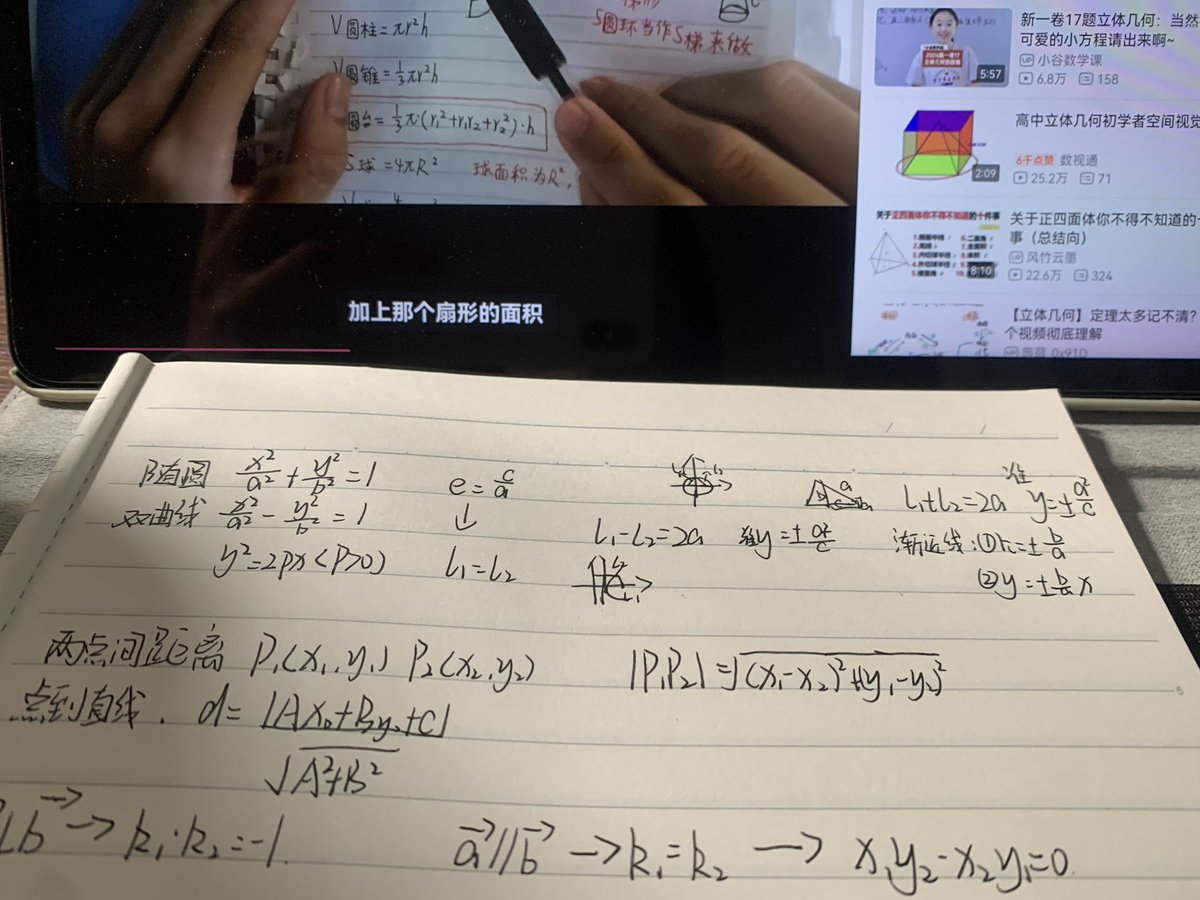 V圆柱=πr²h
S圆环当作S梯来做
V圆锥=1/3πr²h
圆台=1/3π(r₁²+r₁r₂+r₂²)·h
S球=4πR²
球面积为R²,
加上那个扇形的面积
新一卷17题立体几何：当然
可爱的小方程请出来啊~
UP 小谷数学课
6.8万 158
5:57
高中立体几何初学者空间视觉
6千点赞 数视通
25.2万 71
2:09
关于正四面体你不得不知道的十件事
8:10
关于正四面体你不得不知道的十
事（总结向）
UP 风竹云墨
22.6万 324
【立体几何】定理太多记不清？
个视频彻底理解
椭圆 x²/a²+y²/b²=1
e=c/a
L₁+L₂=2a
准 y=±a²/c
双曲线 x²/a²-y²/b²=1
↓
L₁-L₂=2a
准y=±a²/c
渐近线:①k=±b/a
y²=2px<P>0)
L₁=L₂
②y=±b/a x
两点间距离 P₁(x₁,y₁) P₂(x₂,y₂) |P₁P₂|=√(x₁-x₂)²+(y₁-y₂)²
点到直线. d=|Ax₀+By₀+C|/√A²+B²
⊥b→ → k₁·k₂=-1. a→//b→ → k₁=k₂ → x₁y₂-x₂y₁=0.